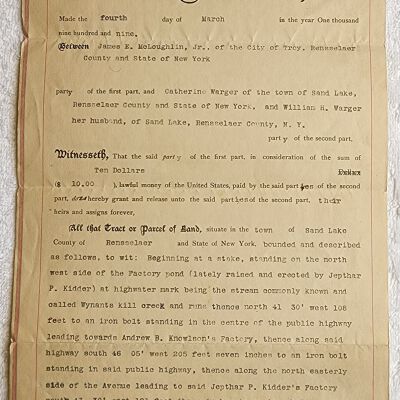 Made the fourth day of March in the year One thousand
nine hundred and nine,
Between James E. McLoughlin, Jr., of the City of Troy, Rensselaer
County and State of New York
party of the first part, and Catherine Warger of the town of Sand Lake,
Rensselaer County and State of New York, and William H. Warger
her husband, of Sand Lake, Rensselaer County, N. Y.
party of the second part.
Witnesseth, That the said party of the first part, in consideration of the sum of
Ten Dollars Dollars
($ 10.00 ), lawful money of the United States, paid by the said parties of the second
part, does hereby grant and release unto the said parties of the second part, their
heirs and assigns forever,
All that Tract or Parcel of Land, situate in the town of Sand Lake
County of Rensselaer and State of New York. bounded and described
as follows, to wit: Beginning at a stake, standing on the north
west side of the Factory pond (lately raised and erected by Jepthar
P. Kidder) at highwater mark being the stream commonly known and
called Wynants kill creek and runs thence north 41 30' west 108
feet to an iron bolt standing in the centre of the public highway
leading towards Andrew B. Knowlson's Factory, thence along said
highway south 46 05' west 205 feet seven inches to an iron bolt
standing in said public highway, thence along the north easterly
side of the Avenue leading to said Jepthar P. Kidder's Factory